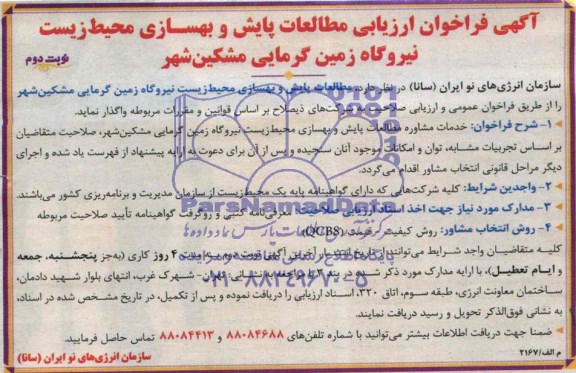 آگهی فراخوان ارزیابی مطالعات پایش و بهسازی محیط‌زیست
نیروگاه زمین گرمایی مشکین‌شهر
نوبت دوم
سازمان انرژی‌های نو ایران (سانا) در نظر دارد، مطالعات پایش و بهسازی محیط‌زیست نیروگاه زمین گرمایی مشکین‌شهر
را از طریق فراخوان عمومی و ارزیابی صلاحیت به شرکت‌های ذیصلاح بر اساس قوانین و مقررات مربوطه واگذار نماید.
۱- شرح فراخوان: خدمات مشاوره مطالعات پایش و بهسازی محیط‌زیست نیروگاه زمین گرمایی مشکین‌شهر، صلاحیت متقاضیان
بر اساس تجربیات مشابه، توان و امکانات موجود آنان سنجیده و پس از آن برای دعوت به ارایه پیشنهاد از فهرست یاد شده و اجرای
دیگر مراحل قانونی انتخاب مشاور اقدام می‌گردد.
۲- واجدین شرایط: کلیه شرکت‌هایی که دارای گواهینامه پایه یک محیط‌زیست از سازمان مدیریت و برنامه‌ریزی کشور می‌باشند.
۳- مدارک مورد نیاز جهت اخذ اسناد ارزیابی صلاحیت: معرفی‌نامه کتبی و روگرفت گواهینامه تأیید صلاحیت مربوطه
۴- روش انتخاب مشاور: روش کیفیت و قیمت (QCBS)
کلیه متقاضیان واجد شرایط می‌توانند از تاریخ انتشار آخرین آگهی نوبت دوم به مدت ۴ روز کاری (به‌جز پنجشنبه، جمعه
و ایام تعطیل)، با ارایه مدارک مورد ذکر شده در بند ۳ با مراجعه به نشانی: تهران - شهرک غرب، انتهای بلوار شهید دادمان،
ساختمان معاونت انرژی، طبقه سوم، اتاق ۳۲۰، اسناد ارزیابی را دریافت نموده و پس از تکمیل، در تاریخ مشخص شده در اسناد،
به نشانی فوق‌الذکر تحویل و رسید دریافت نمایند.
ضمنا جهت دریافت اطلاعات بیشتر می‌توانید با شماره تلفن‌های ۸۸۰۸۴۶۸۸ و ۸۸۰۸۴۴۱۳ تماس حاصل فرمایید.
م الف/۲۱۶۷
سازمان انرژی‌های نو ایران (سانا)
ParsNamadData
۰۲۱-۸۸۳۴۹۶۷۰-۵